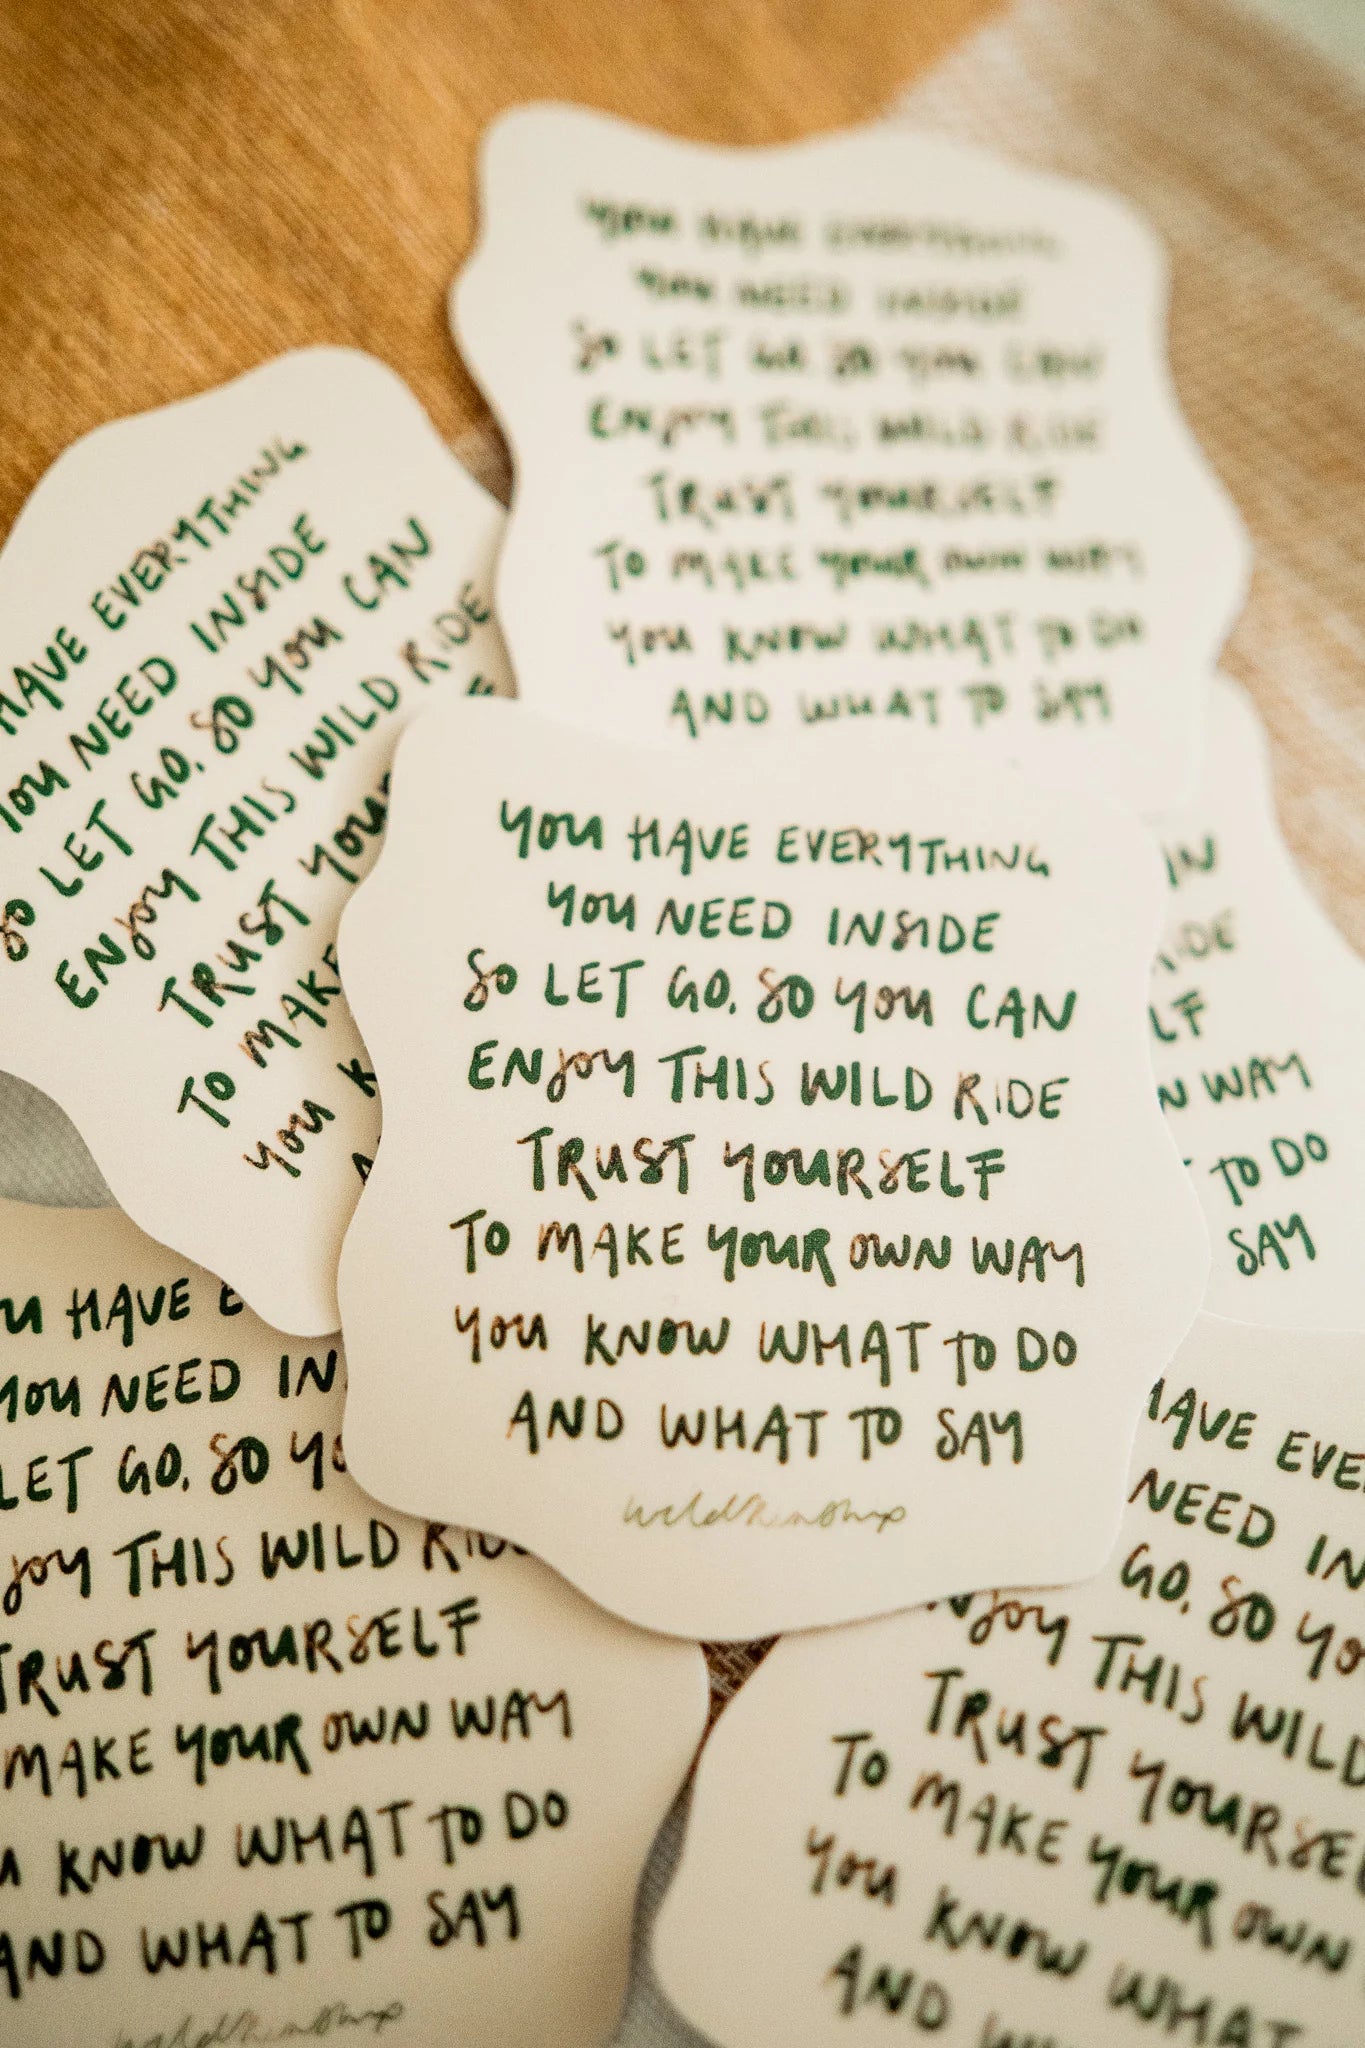 YOU HAVE EVERYTHING
YOU NEED INSIDE
SO LET GO. SO YOU CAN
ENJOY THIS WILD RIDE
TRUST YOURSELF
TO MAKE YOUR OWN WAY
YOU KNOW WHAT TO DO
AND WHAT TO SAY
HAVE EVERYTHING
YOU NEED INSIDE
SO LET GO. SO YOU CAN
ENJOY THIS WILD RIDE
TRUST YOUR
TO MAKE
YOU K
YOU HAVE EVERYTHING
YOU NEED INSIDE
SO LET GO. SO YOU CAN
ENJOY THIS WILD RIDE
TRUST YOURSELF
TO MAKE YOUR OWN WAY
YOU KNOW WHAT TO DO
AND WHAT TO SAY
wildkinship
IN
RIDE
LF
N WAY
TO DO
SAY
HAVE E
YOU NEED IN
LET GO. SO YO
JOY THIS WILD RIDE
TRUST YOURSELF
MAKE YOUR OWN WAY
KNOW WHAT TO DO
AND WHAT TO SAY
wildkinship
HAVE EVE
NEED IN
GO. SO YO
NJOY THIS WILD
TRUST YOURSE
TO MAKE YOUR OWN
YOU KNOW WHAT
AND W